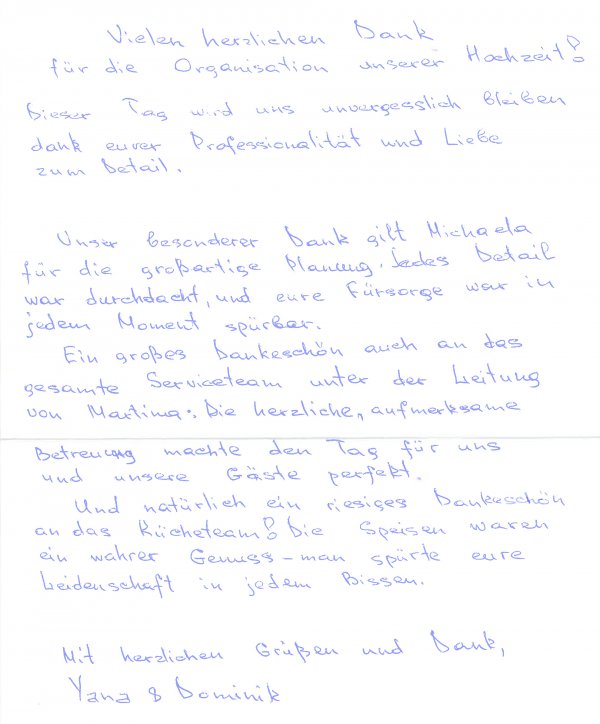 Vielen herzlichen Dank
für die Organisation unserer Hochzeit!
Dieser Tag wird uns unvergesslich bleiben
dank eurer Professionalität und Liebe
zum Detail.
Unser besonderer Dank gilt Michaela
für die großartige Planung. Jedes Detail
war durchdacht, und eure Fürsorge war in
jedem Moment spürbar.
Ein großes Dankeschön auch an das
gesamte Serviceteam unter der Leitung
von Martina: Die herzliche, aufmerksame
Betreuung machte den Tag für uns
und unsere Gäste perfekt.
Und natürlich ein riesiges Dankeschön
an das Kücheteam! Die Speisen waren
ein wahrer Genuss – man spürte eure
Leidenschaft in jedem Bissen.
Mit herzlichen Grüßen und Dank,
Yana & Dominik